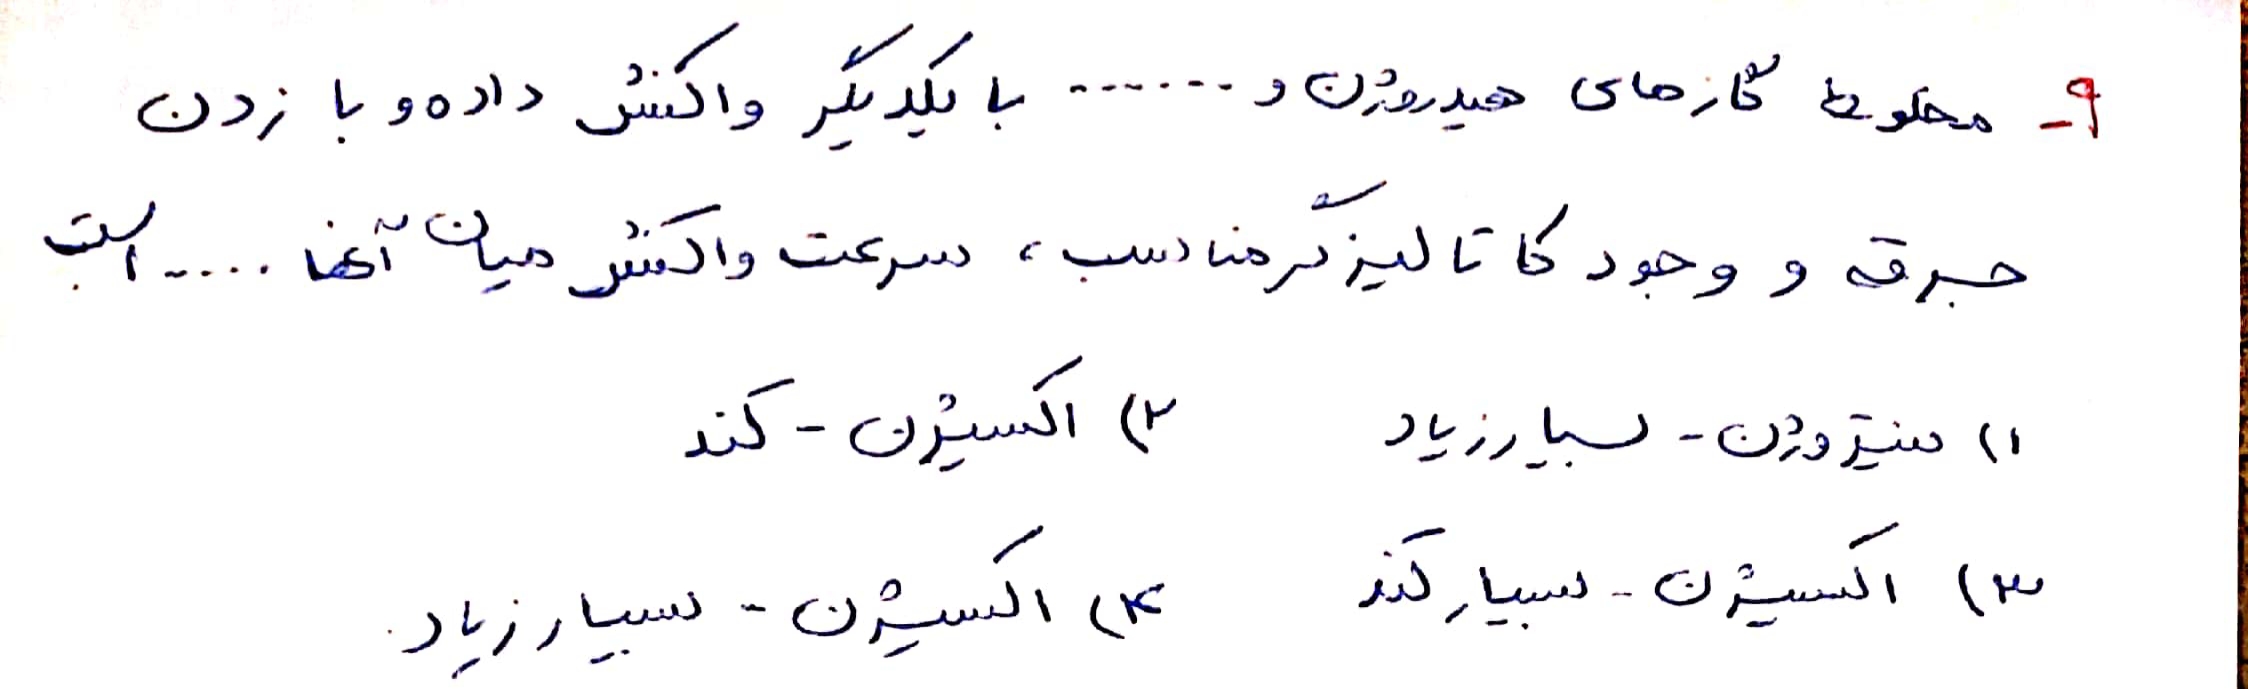 ۹- مخلوط گازهای هیدروژن و ...... با یکدیگر واکنش داده و با زدن
جرقه و وجود کاتالیزگر مناسب، سرعت واکنش میان آنها ..... است
۱) نیتروژن - بسیار زیاد ۲) اکسیژن - کند
۳) اکسیژن - بسیار کند ۴) اکسیژن - بسیار زیاد.